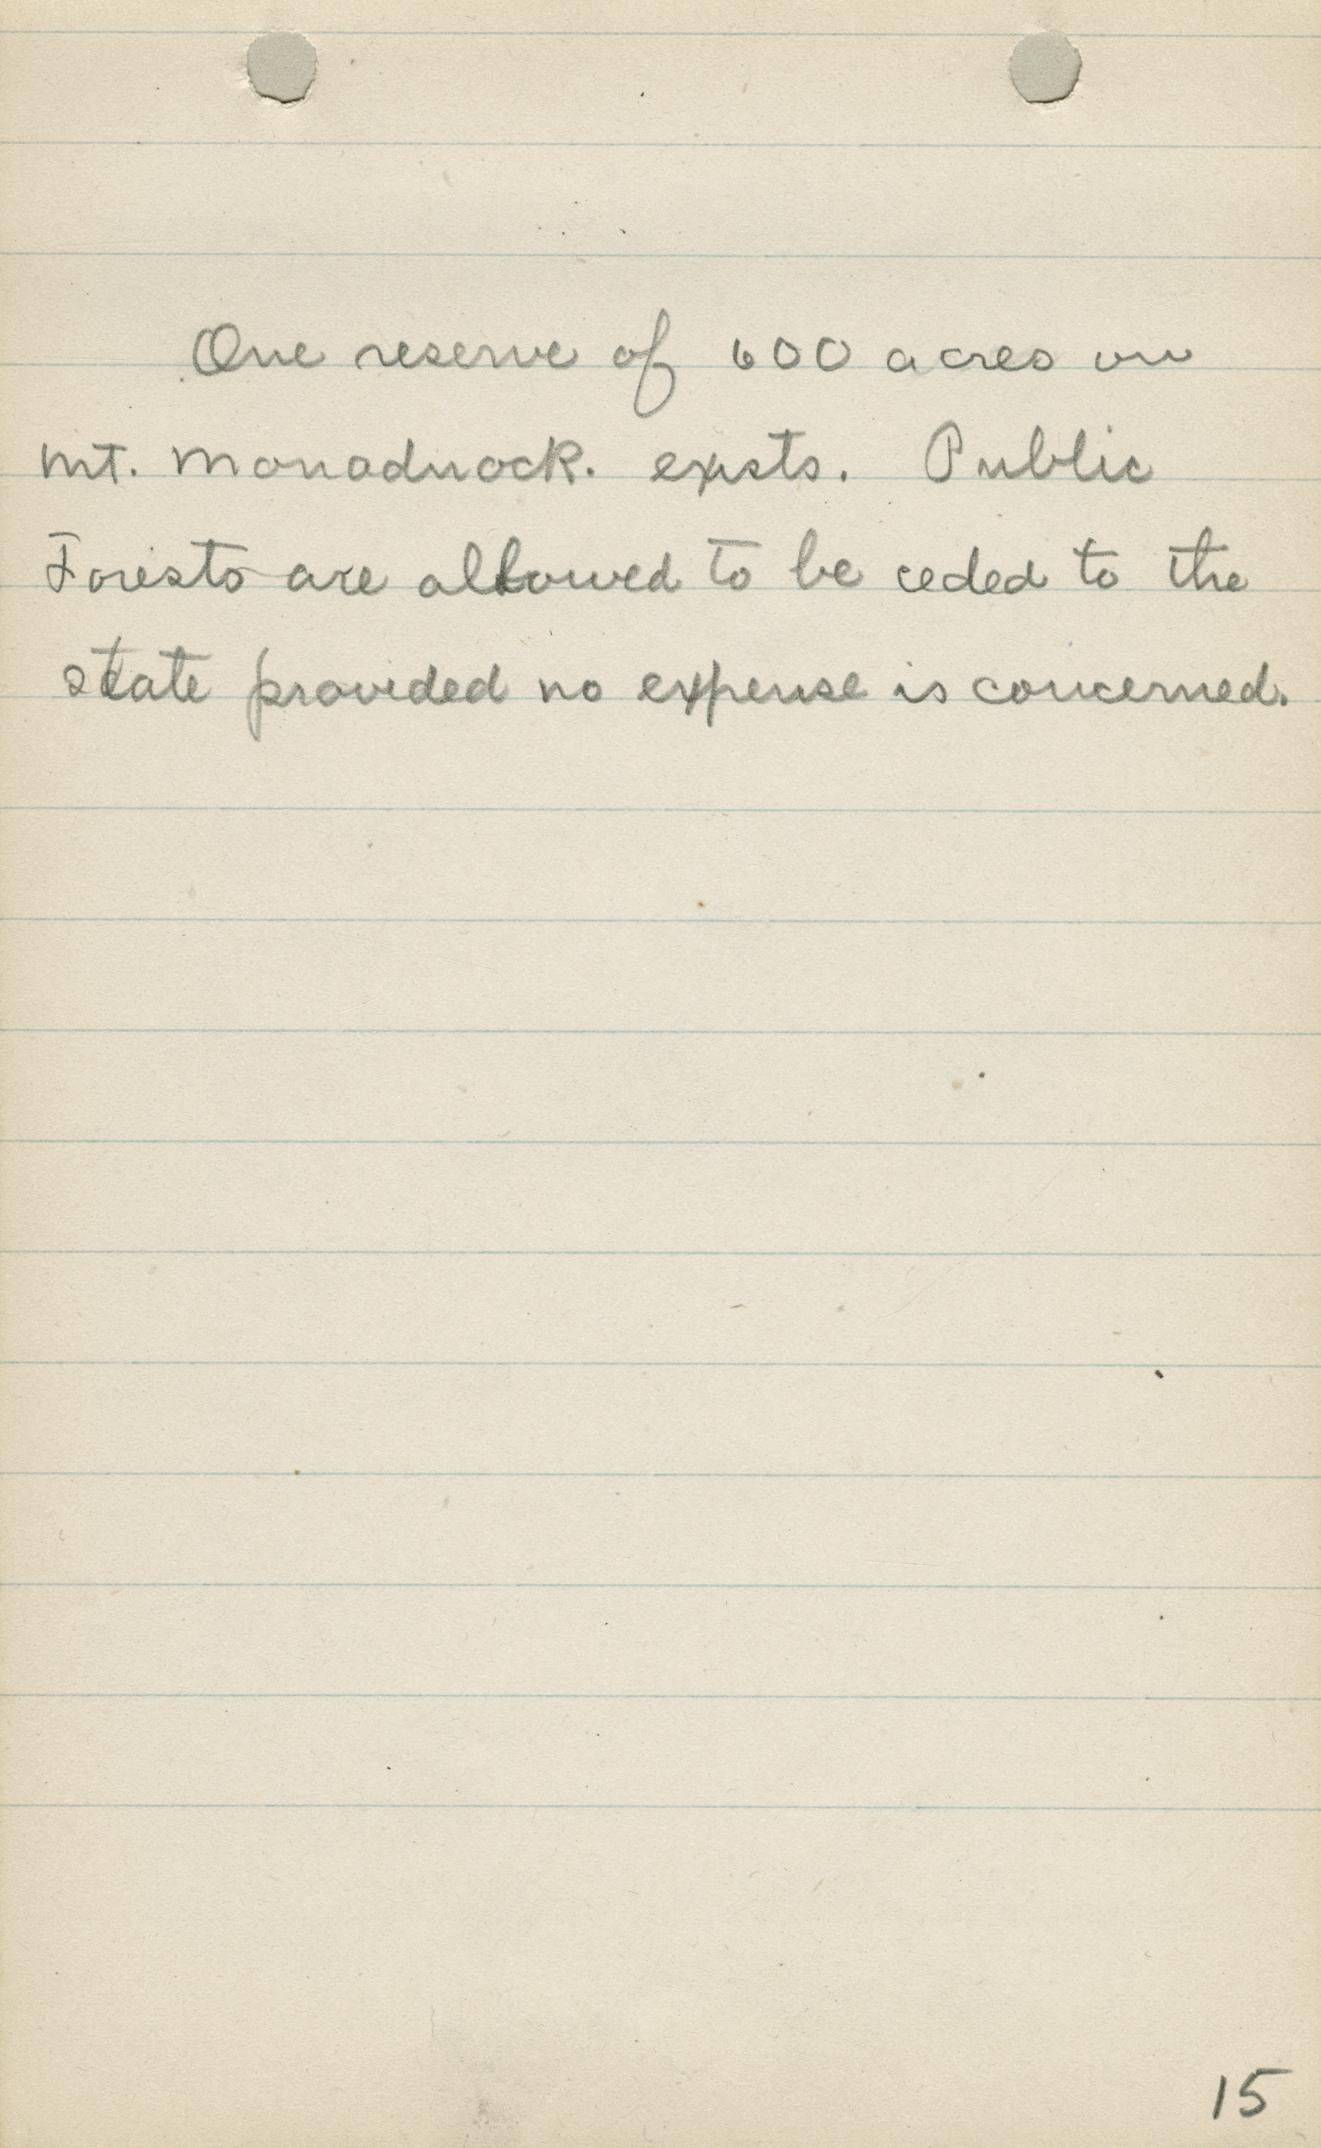 One reserve of 600 acres on
Mt. Monadnock. exists. Public
Forests are allowed to be ceded to the
state provided no expense is concerned.
15